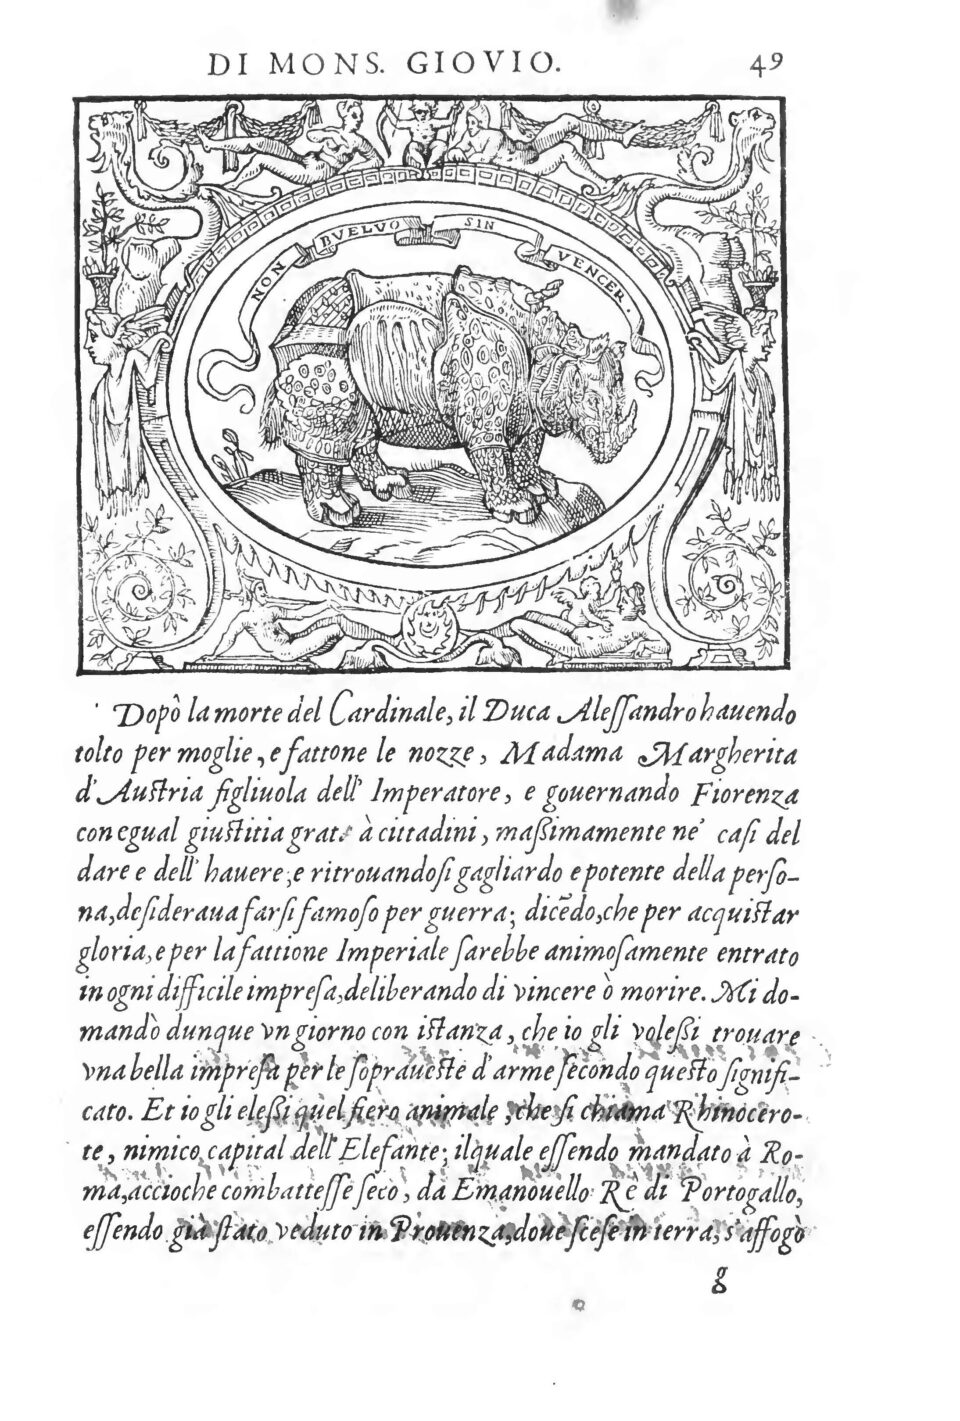 DI MONS. GIOVIO. 49
NON BVELVO SIN VENCER.
Dopò la morte del Cardinale, il Duca Aleſſandro hauendo
tolto per moglie, e fattone le nozze, Madama Margherita
d'Auſtria figliuola dell' Imperatore, e gouernando Fiorenza
con egual giuſtitia grat à cittadini, maſsimamente ne' caſi del
dare e dell' hauere, e ritrouandoſi gagliardo e potente della perſo-
na, deſideraua farſi famoſo per guerra; dicẽdo, che per acquiſtar
gloria, e per la fattione Imperiale ſarebbe animoſamente entrato
in ogni difficile impreſa, deliberando di vincere ò morire. Mi do-
mandò dunque vn giorno con iſtanza, che io gli voleſsi trouare
vna bella impreſa per le ſoprаueſte d'arme ſecondo queſto ſignifi-
cato. Et io gli eleſsi quel fiero animale, che ſi chiama Rhinocero-
te, nimico capital dell' Elefante; ilquale eſſendo mandato à Ro-
ma, accioche combatteſſe ſeco, da Emanouello Rè di Portogallo,
eſſendo già ſtato veduto in Prouenza, doue ſceſe in terra, s'affogò
g